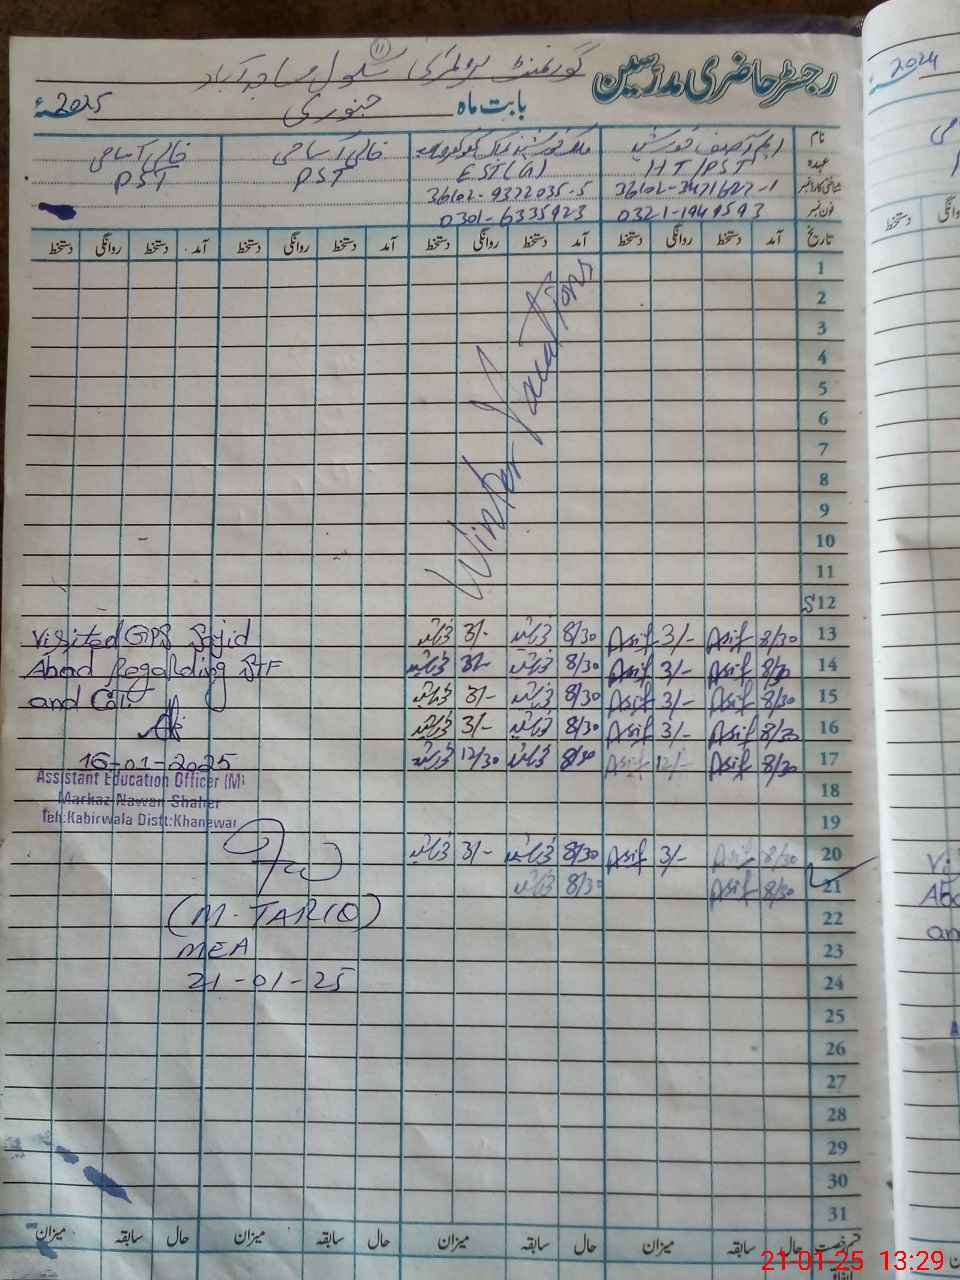 رجسٹر حاضری مدرسین گورنمنٹ پرائمری سکول ساجد آباد
11
بابت ماہ جنوری 2025ء
2024ء
نام ایم آصف خورشید خالی آسامی خالی آسامی
عہدہ HT/PST EST(A) PST PST
شناختی کارڈ نمبر 36102-3421622-1 36102-9322035-5
فون نمبر 0321-1949593 0301-6335923
تاریخ آمد دستخط روانگی دستخط آمد دستخط روانگی دستخط آمد دستخط روانگی دستخط آمد دستخط روانگی دستخط
1
2
3
4
5
6
7
8
9
10
11
12
Winter Vacations
13 8/30 Asif 3/- Asif 8/30 3/-
14 8/30 Asif 3/- Asif 8/30 3/-
15 8/30 Asif 3/- Asif 8/30 3/-
16 8/30 Asif 3/- Asif 8/30 3/-
17 8/30 Asif 12/- Asif 12/30
18
19
20 8/30 Asif 3/- Asif 8/30 3/-
21 8/30 Asif 8/30
22
23
24
25
26
27
28
29
30
31
Visited GPS Sajid
Abad Regarding STF
and
16-01-2025
Assistant Education Officer (M)
Markaz Nawan Shaher
Teh:Kabirwala Distt:Khanewal
(M. TARIQ)
MEA
21-01-25
قسم رخصت حال سابقہ میزان حال سابقہ میزان حال سابقہ میزان حال سابقہ میزان
21-01-25 13:29